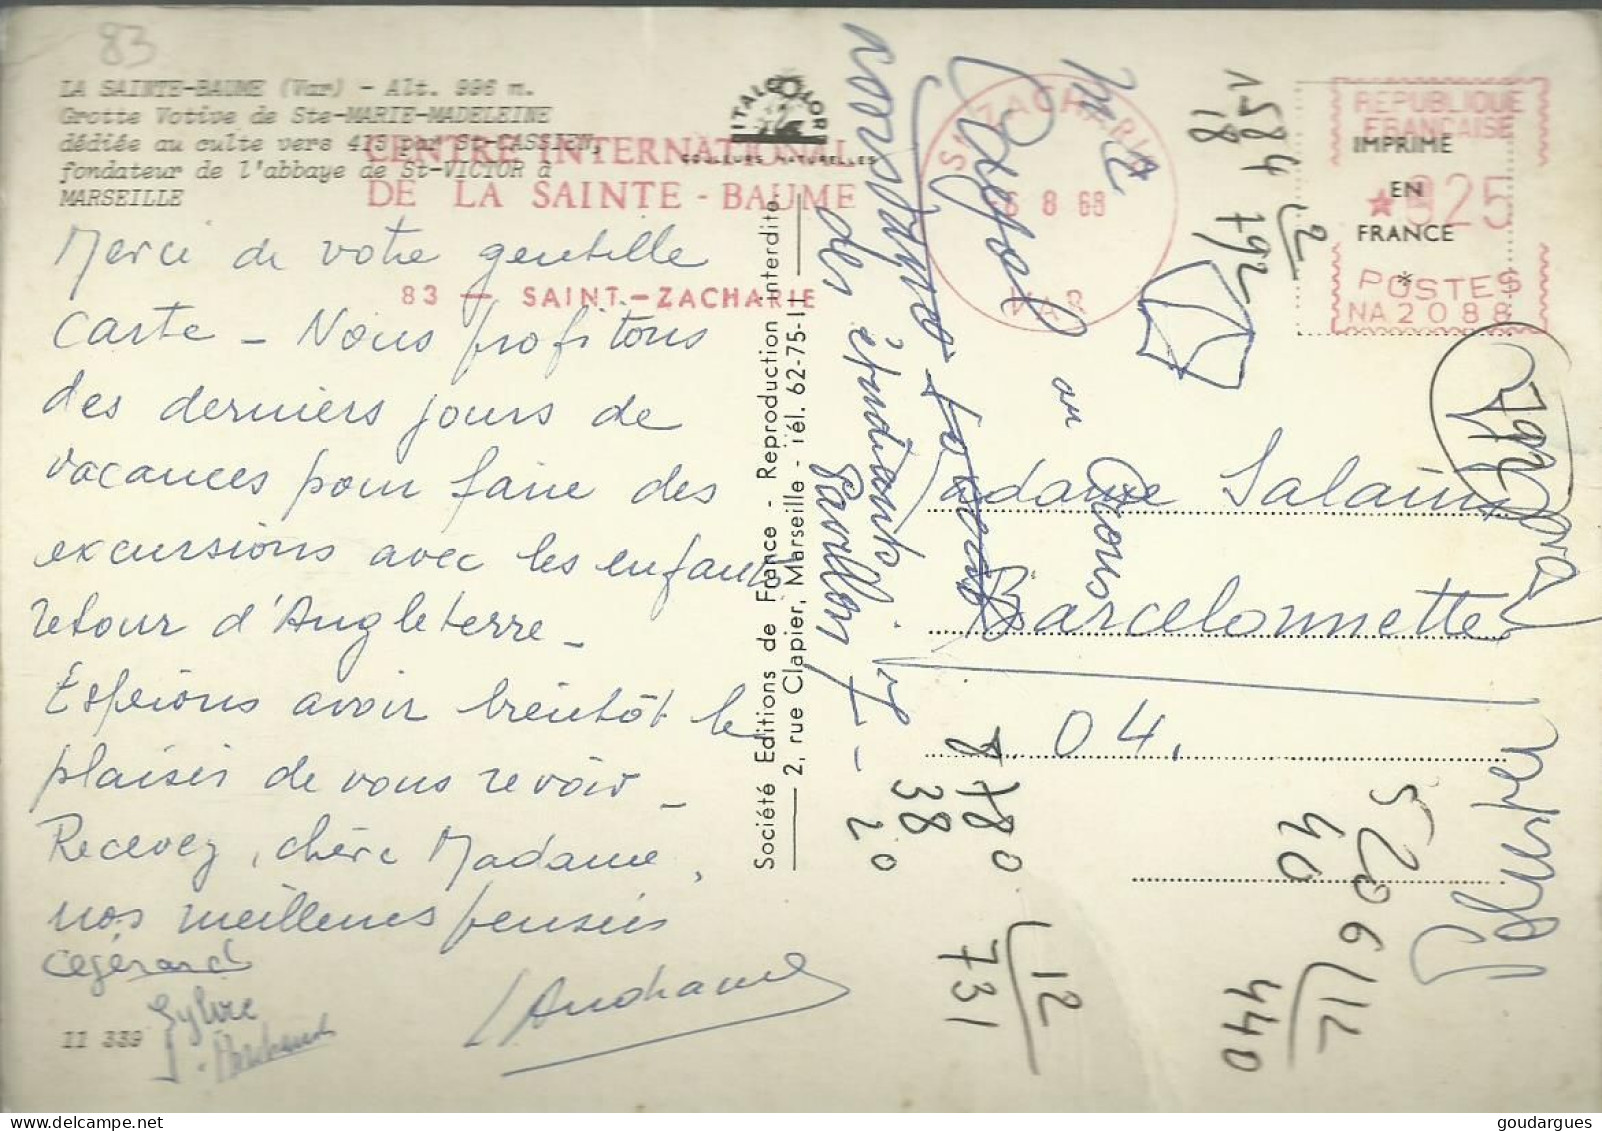 83
LA SAINTE-BAUME (Var) - Alt. 996 m.
Grotte Votive de Ste-MARIE-MADELEINE
dédiée au culte vers 415 par St-CASSIEN,
fondateur de l'abbaye de St-VICTOR à
MARSEILLE
CENTRE INTERNATIONAL
DE LA SAINTE-BAUME
83 — SAINT-ZACHARIE
ITALCOLOR
COULEURS NATURELLES
ST ZACHARIE
6 8 68
VAR
REPUBLIQUE
FRANCAISE
★ 025
POSTES
NA 2088
IMPRIME
EN
FRANCE
*
Merci de votre gentille
carte - Nous profitons
des derniers jours de
vacances pour faire des
excursions avec les enfants
retour d'Angleterre -
Espérons avoir bientôt le
plaisir de vous revoir -
Recevez, chère Madame,
nos meilleures pensées
Sylvie
11 339
Société Editions de France - Reproduction interdite
2, rue Clapier, Marseille - tél. 62-75-11
Madame Salain
Barcelonnette
04.
des étudiants
Pavillon
au
1584
18
792
2
792
780
38
20
12
731
5206
40
12
440
goudargues